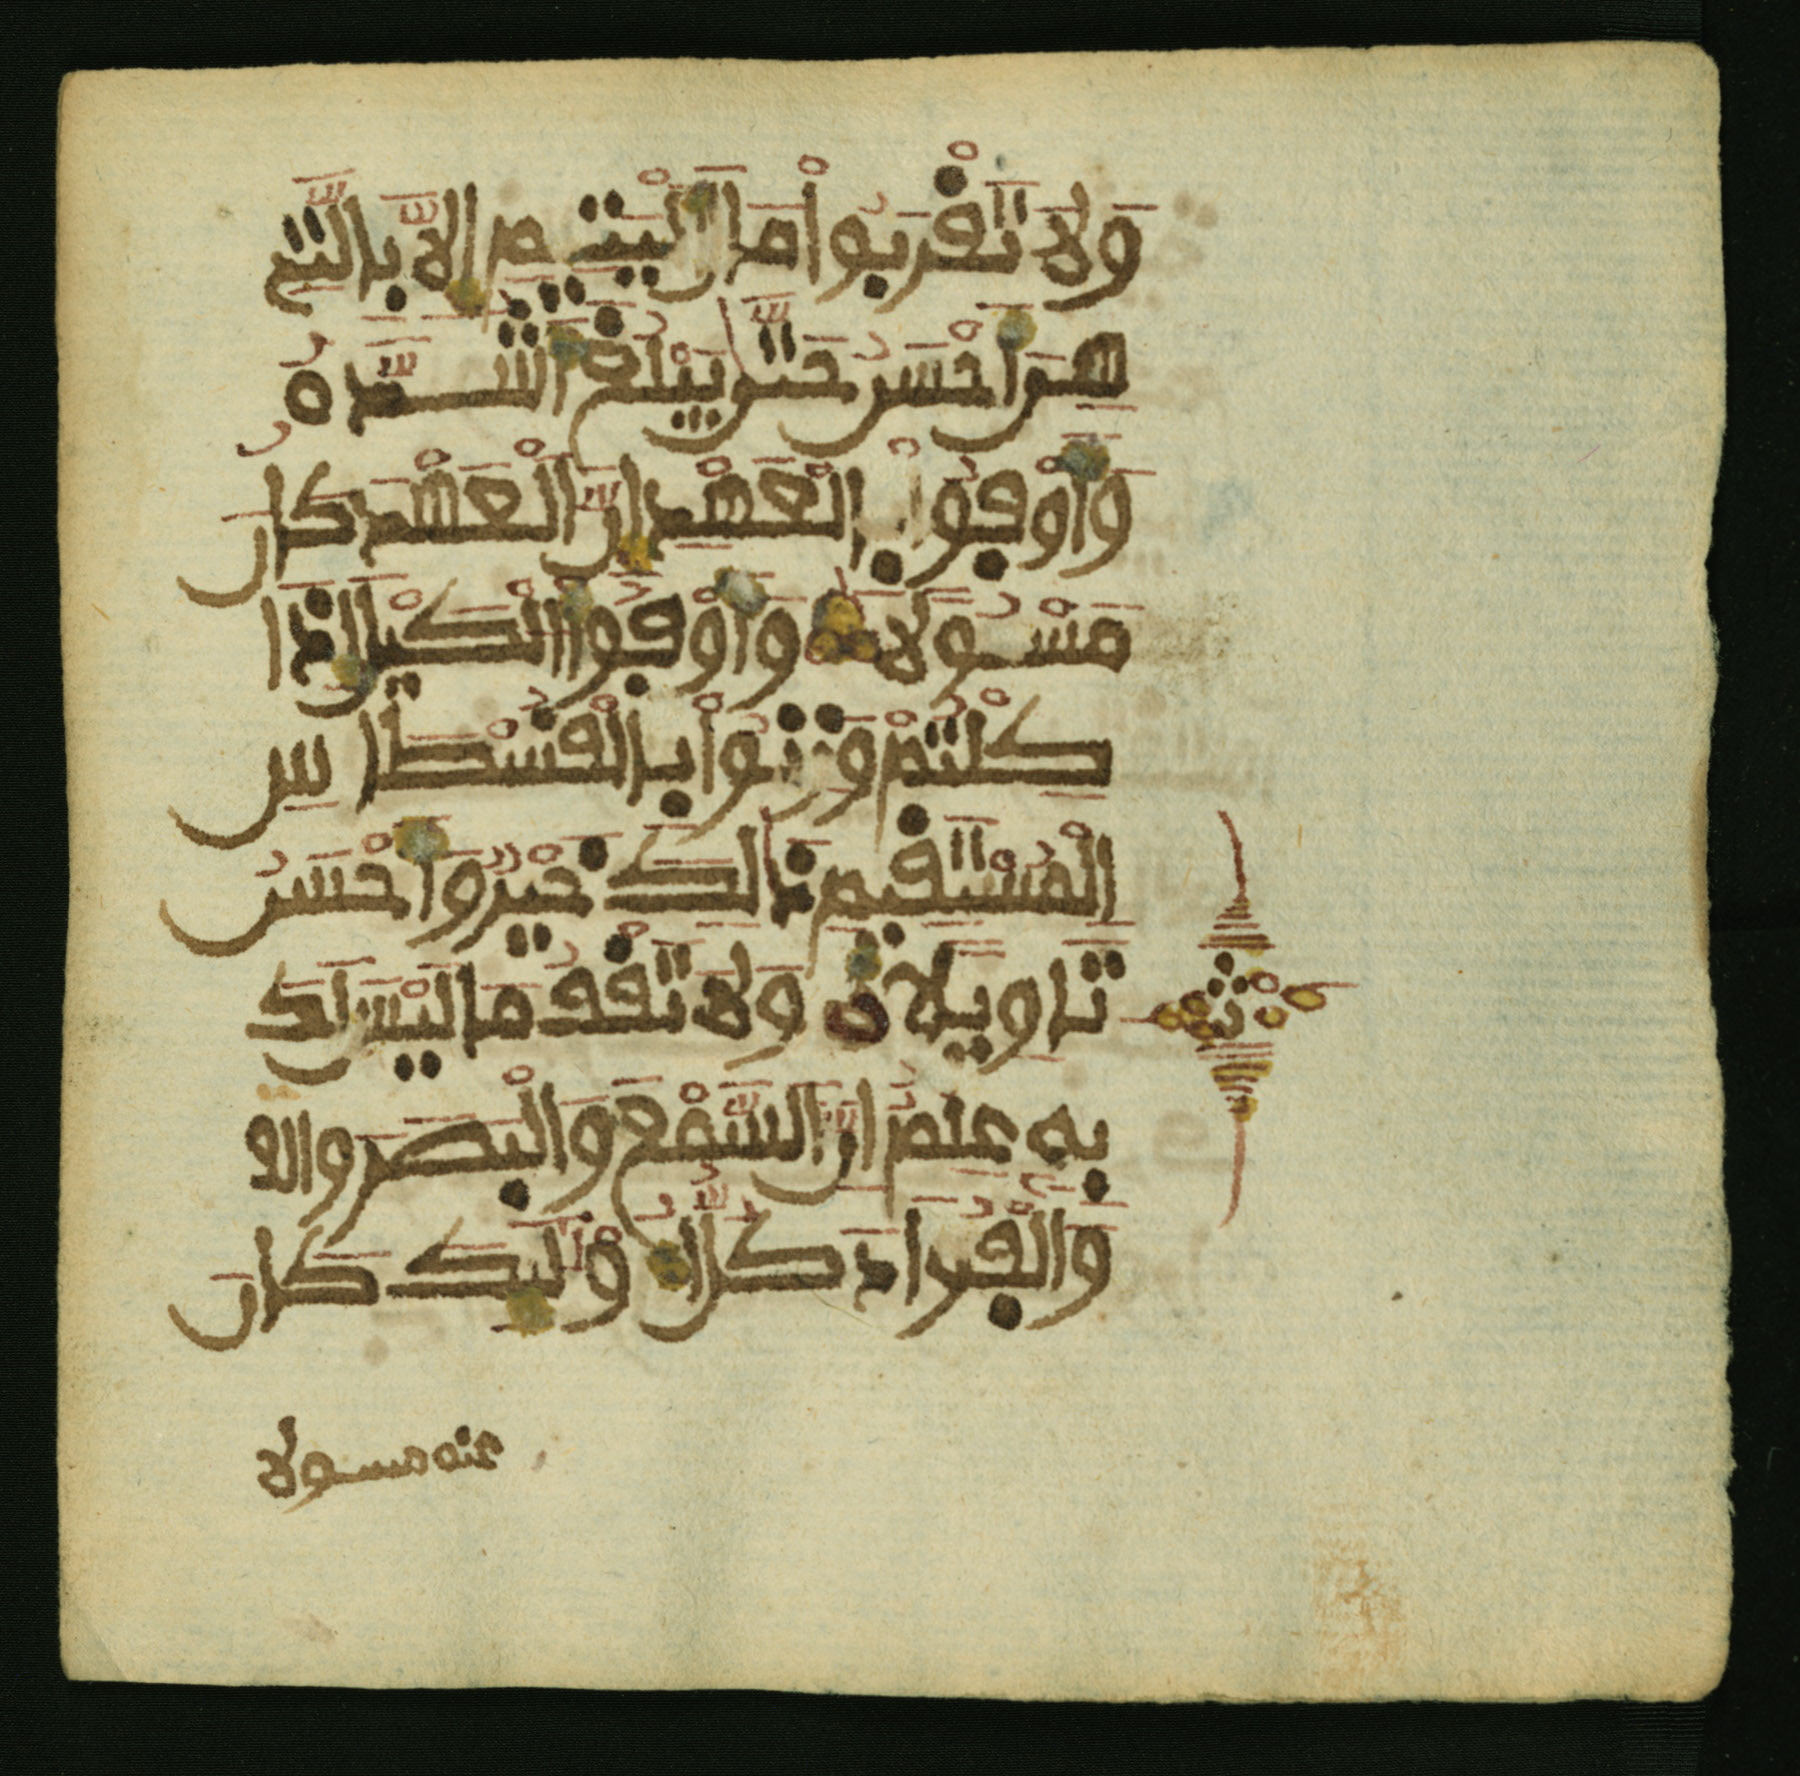 وَلَا تَقْرَبُوا أَمْوَالَ الْيَتِيمِ إِلَّا بِالَّتِے
هِيَ أَحْسَنُ حَتَّىٰ يَبْلُغَ أَشُدَّهُ
وَأَوْفُوا بِالْعَهْدِ إِنَّ الْعَهْدَ كَانَ
مَسْـُٔولًا وَأَوْفُوا الْكَيْلَ إِذَا
كِلْتُمْ وَزِنُوا بِالْقُسْطَاسِ
الْمُسْتَقِيمِ ذَٰلِكَ خَيْرٌ وَأَحْسَنُ
تَاوِيلًا وَلَا تَقْفُ مَا لَيْسَ لَكَ
بِهِ عِلْمٌ إِنَّ السَّمْعَ وَالْبَصَرَ
وَالْفُؤَادَ كُلُّ أُوْلَٰئِكَ كَانَ
عنه مسولا